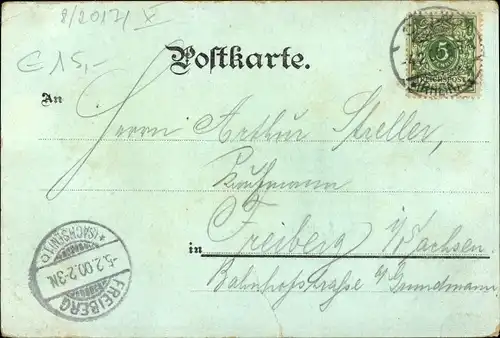 8/2017 X
€ 15,-
Postkarte.
5
REICHSPOST
An
Herrn Arthur Streller,
Kaufmann
in Freiberg i/Sachsen.
Bahnhofstraße b/Grundmann
*(SACHSEN)1c
5.2.00.2-3N.
FREIBERG